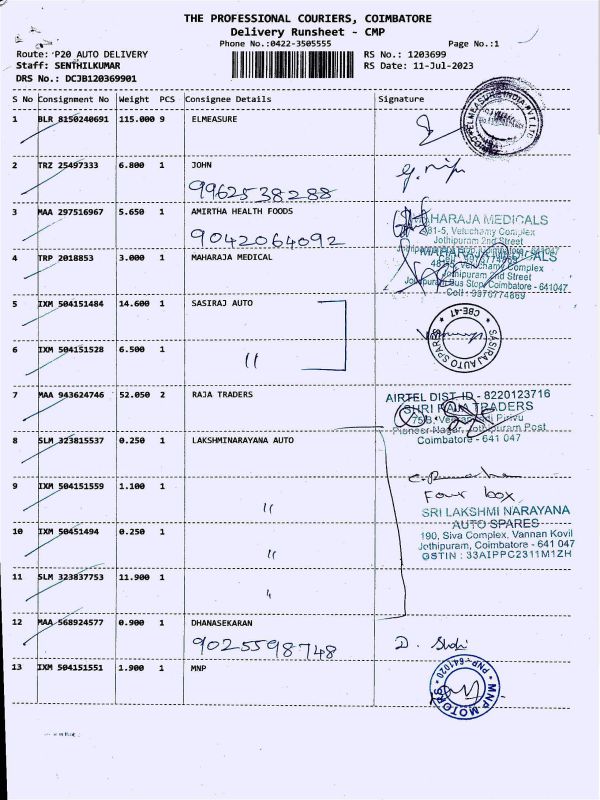 THE PROFESSIONAL COURIERS, COIMBATORE
Delivery Runsheet - CMP
Phone No.:0422-3505555 Page No.:1
Route: P20 AUTO DELIVERY RS No.: 1203699
Staff: SENTHILKUMAR RS Date: 11-Jul-2023
DRS No.: DCJB120369901
S No Consignment No Weight PCS Consignee Details Signature
1 BLR 8150240691 115.000 9 ELMEASURE
2 TRZ 25497333 6.800 1 JOHN
9962538288
3 MAA 297516967 5.650 1 AMIRTHA HEALTH FOODS
9042064092
MAHARAJA MEDICALS
481-5, Veluchamy Complex
Jothipuram 2nd Street
4 TRP 2018853 3.000 1 MAHARAJA MEDICAL
MAHARAJA MEDICALS
Veluchamy Complex
Jothipuram 2nd Street
Jothipuram Bus Stop, Coimbatore - 641047
Cell : 9976774869
5 IXM 504151484 14.600 1 SASIRAJ AUTO
SASIRAJ AUTO SPARES
CBE-47
6 IXM 504151528 6.500 1 "
7 MAA 943624746 52.050 2 RAJA TRADERS
AIRTEL DIST ID - 8220123716
SHRI RAJA TRADERS
Pirivu
Pioneer Nagar, Jothipuram Post
Coimbatore - 641 047
8 SLM 323815537 0.250 1 LAKSHMINARAYANA AUTO
9 IXM 504151559 1.100 1 "
Four box
SRI LAKSHMI NARAYANA
AUTO SPARES
190, Siva Complex, Vannan Kovil
Jothipuram, Coimbatore - 641 047
GSTIN : 33AIPPC2311M1ZH
10 IXM 50451494 0.250 1 "
11 SLM 323837753 11.900 1 "
12 MAA 568924577 0.900 1 DHANASEKARAN
9025598748
13 IXM 504151551 1.900 1 MNP
MNA MOTORS
PNP-641020